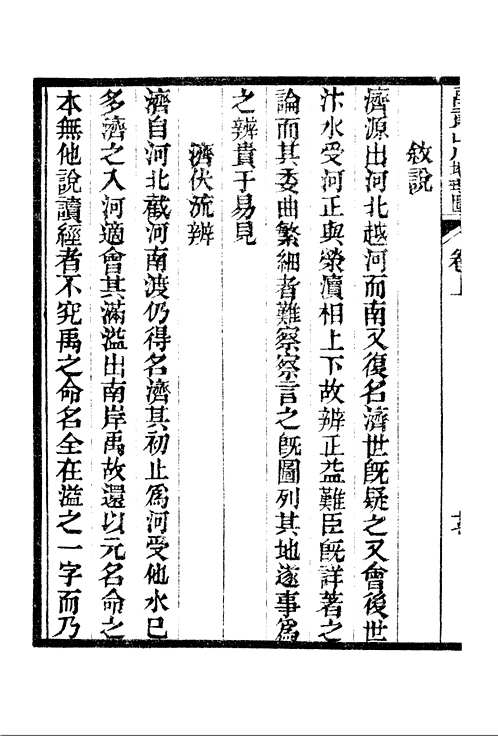 敘說
濟源出河北越河而南又復名濟世旣疑之又會後世
汴水受河正與滎瀆相上下故辨正益難臣旣詳著之
論而其委曲繁細者難察察言之旣圖列其地遂事爲
之辨貴于易見
濟伏流辨
濟自河北截河南渡仍得名濟其初止爲河受他水已
多濟之入河適會其滿溢出南岸禹故還以元名命之
本無他說讀經者不究禹之命名全在溢之一字而乃